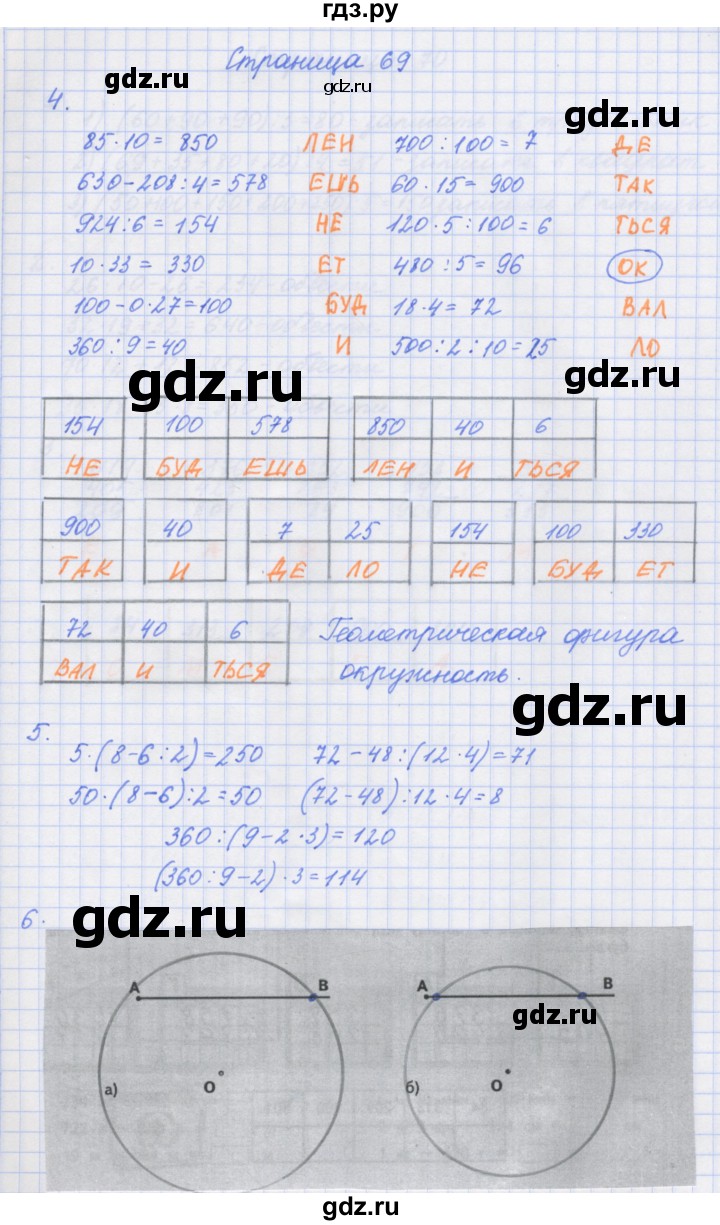 гдз.ру
Страница 69
gdz.ru
gdz.ru
4.
85·10= 850 ЛЕН 700:100= 7 ДЕ
gdz.ru
630-208:4=578 ЕШЬ 60·15=900 ТАК
924:6=154 НЕ 120·5:100=6 ТЬСЯ
10·33= 330 ЕТ 480:5=96 ОК
100-0·27=100 БУД 18·4=72 ВАЛ
360:9=40 И 500:2:10=25 ЛО
gdz.ru
gdz.ru
154 100 578 850 40 6
НЕ БУД ЕШЬ ЛЕН И ТЬСЯ
900 40 7 25 154 100 330
ТАК И ДЕ ЛО НЕ БУД ЕТ
gdz.ru
72 40 6 Геометрическая фигура
ВАЛ И ТЬСЯ окружность.
gdz.ru
5.
5·(8-6:2)=250 72-48:(12·4)=71
50·(8-6):2=50 (72-48):12·4=8
360:(9-2·3)=120
(360:9-2)·3=114
gdz.ru
6.
А В А В
gdz.ru
а) О б) О
gdz.ru